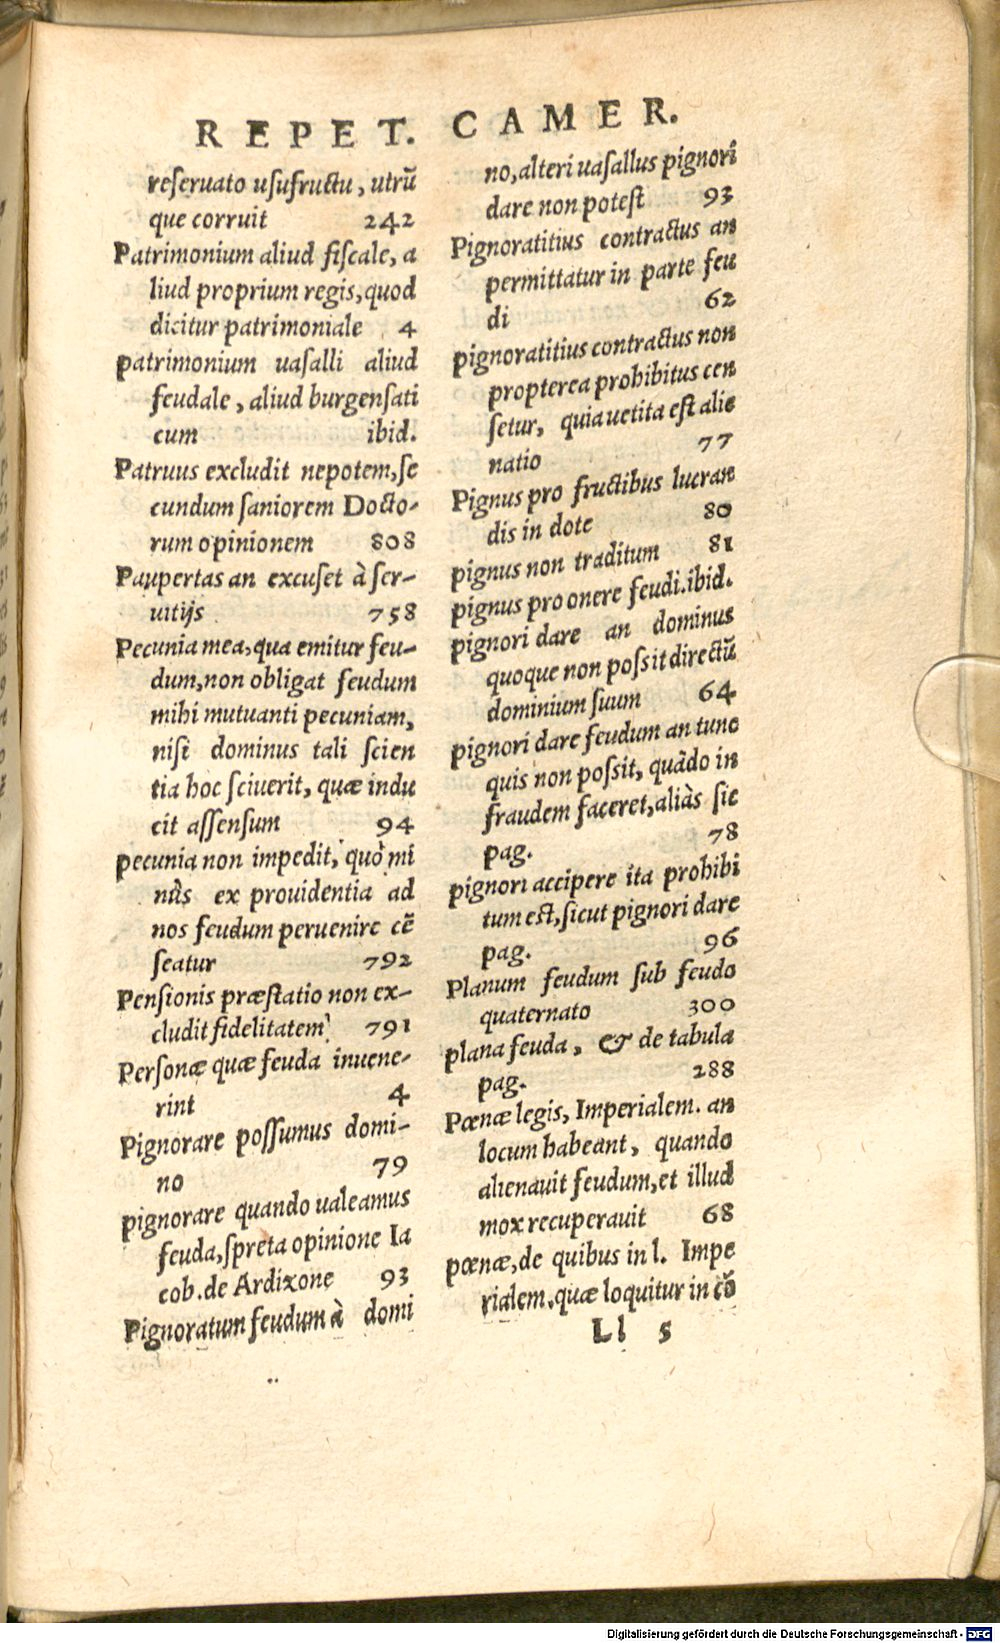 REPET. CAMER.
reſeruato uſufructu, utrũ
que corruit 242
Patrimonium aliud fiſcale, a
liud proprium regis, quod
dicitur patrimoniale 4
patrimonium uaſalli aliud
feudale, aliud burgenſati
cum ibid.
Patruus excludit nepotem, ſe
cundum ſaniorem Docto-
rum opinionem 808
Paupertas an excuſet à ſer-
uitijs 758
Pecunia mea, qua emitur feu-
dum, non obligat feudum
mihi mutuanti pecuniam,
niſi dominus tali ſcien
tia hoc ſciuerit, quæ indu
cit aſſenſum 94
pecunia non impedit, quò mi
nùs ex prouidentia ad
nos feudum peruenire cẽ
ſeatur 792
Penſionis præſtatio non ex-
cludit fidelitatem 791
Perſonæ quæ feuda inuene-
rint 4
Pignorare poſſumus domi-
no 79
pignorare quando ualeamus
feuda, ſpreta opinione Ia
cob. de Ardixone 93
Pignoratum feudum à domi
no, alteri uaſallus pignori
dare non poteſt 93
Pignoratitius contractus an
permittatur in parte feu
di 62
pignoratitius contractus non
propterea prohibitus cen
ſetur, quia uetita eſt alie
natio 77
Pignus pro fructibus lucran
dis in dote 80
pignus non traditum 81
pignus pro onere feudi. ibid.
pignori dare an dominus
quoque non poſsit directũ
dominium ſuum 64
pignori dare feudum an tunc
quis non poſsit, quãdo in
fraudem faceret, aliàs ſic
pag. 78
pignori accipere ita prohibi
tum eſt, ſicut pignori dare
pag. 96
Planum feudum ſub feudo
quaternato 300
plana feuda, & de tabula
pag. 288
Pœnæ legis, Imperialem. an
locum habeant, quando
alienauit feudum, et illud
mox recuperauit 68
pœnæ, de quibus in l. Impe
rialem. quæ loquitur in cõ
Ll 5
Digitalisierung gefördert durch die Deutsche Forschungsgemeinschaft - DFG